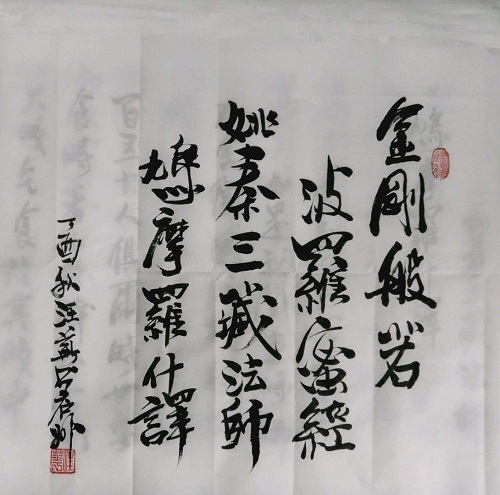 金剛般若
波羅蜜經
姚秦三藏法師
鳩摩羅什譯
丁酉秋汪